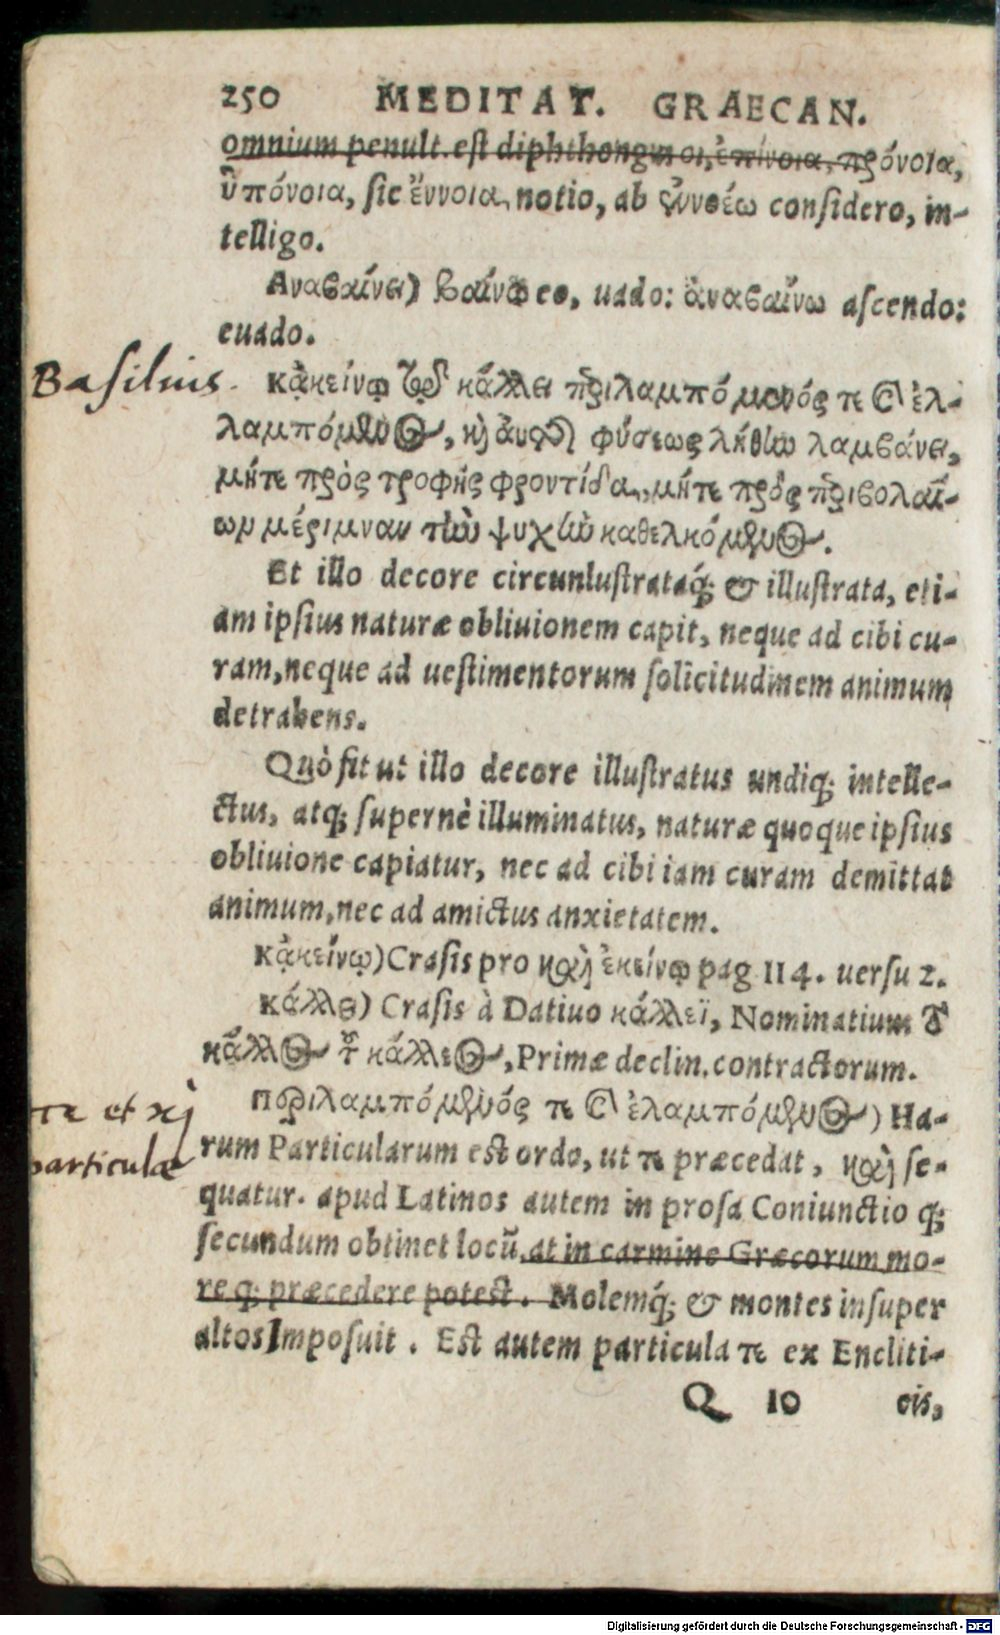 250 MEDITAT. GRAECAN.
omnium penult. est diphthongus οι, ἐπίνοια, πρόνοια,
ὑπόνοια, sic ἔννοια, notio, ab ἐννοέω considero, in-
telligo.
Αναβαίνει) βαίνω eo, uado: ἀναβαίνω ascendo:
euado.
Basilius.
κἀκείνῳ τῷ κάλλει περιλαμπόμενός τε καὶ ἐλ-
λαμπόμενος, καὶ αὐτῆς φύσεως λήθην λαμβάνει,
μήτε πρὸς τροφῆς φροντίδα, μήτε πρὸς περιβολαί-
ων μέριμναν τὴν ψυχὴν καθελκόμενος.
Et illo decore circunlustrataq́; & illustrata, eti-
am ipsius naturæ obliuionem capit, neque ad cibi cu-
ram, neque ad uestimentorum solicitudinem animum
detrahens.
Quò fit ut illo decore illustratus undiq; intelle-
ctus, atq; supernè illuminatus, naturæ quoque ipsius
obliuione capiatur, nec ad cibi iam curam demittat
animum, nec ad amictus anxietatem.
κἀκείνῳ) Crasis pro καὶ ἐκείνῳ pag 114. uersu 2.
κάλλει) Crasis à Datiuo κάλλεϊ, Nominatiuum τὸ
κάλλος τοῦ κάλλεος, Primæ declin. contractorum.
τε et καὶ
particulæ
περιλαμπόμενός τε καὶ ἐλαμπόμενος) Ha-
rum Particularum est ordo, ut τε præcedat, καὶ se-
quatur. apud Latinos autem in prosa Coniunctio q;
secundum obtinet locũ, at in carmine Græcorum mo-
re q; præcedere potest. Molemq́; & montes insuper
altos Imposuit. Est autem particula τε ex Encliti-
Q 10 cis,
Digitalisierung gefördert durch die Deutsche Forschungsgemeinschaft - DFG